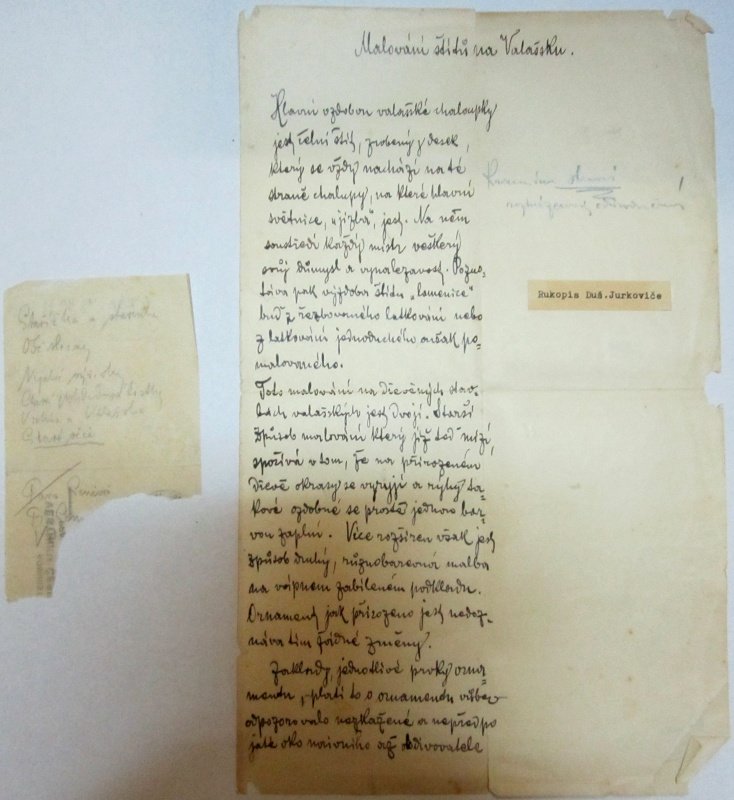 Malování štítů na Valašsku.
Hlavní ozdobou valašské chaloupky
jest čelní štít, zrobený z desek,
který se vždy nachází na té
straně chalupy, na které hlavní
světnice, „jizba", jest. Na něm
soustředí každý mistr veškerý
svůj důmysl a vynalezavost. Pozů-
stává pak výzdoba štítu „lomenice"
buď z řezbovaného latkování nebo
z latkování jednoduchého avšak po-
malovaného.
Toto malování na dřevěných stav-
bách valašských jest dvojí. Starší
způsob malování který již teď mizí,
spočívá v tom, že na přirozeném
dřevě okrasy se vyryjí a rýhy ta-
kové ozdobné se prostě jednou bar-
vou zaplní. Více rozšířen však jest
způsob druhý, různobarevná malba
na vápnem zabíleném podkladu.
Ornament jak přirozeno jest nedoz-
nává tím žádné změny.
Základy, jednotlivé prvky orna-
mentu, platí to o ornamentu vůbec
odpozorovalo nezkažené a nepředpo
jaté oko naivního až obdivovatele
Rukopis Duš.Jurkoviče